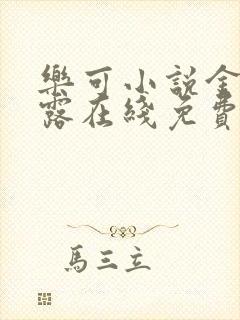 樂可小說金
露在綫免費
馬三立